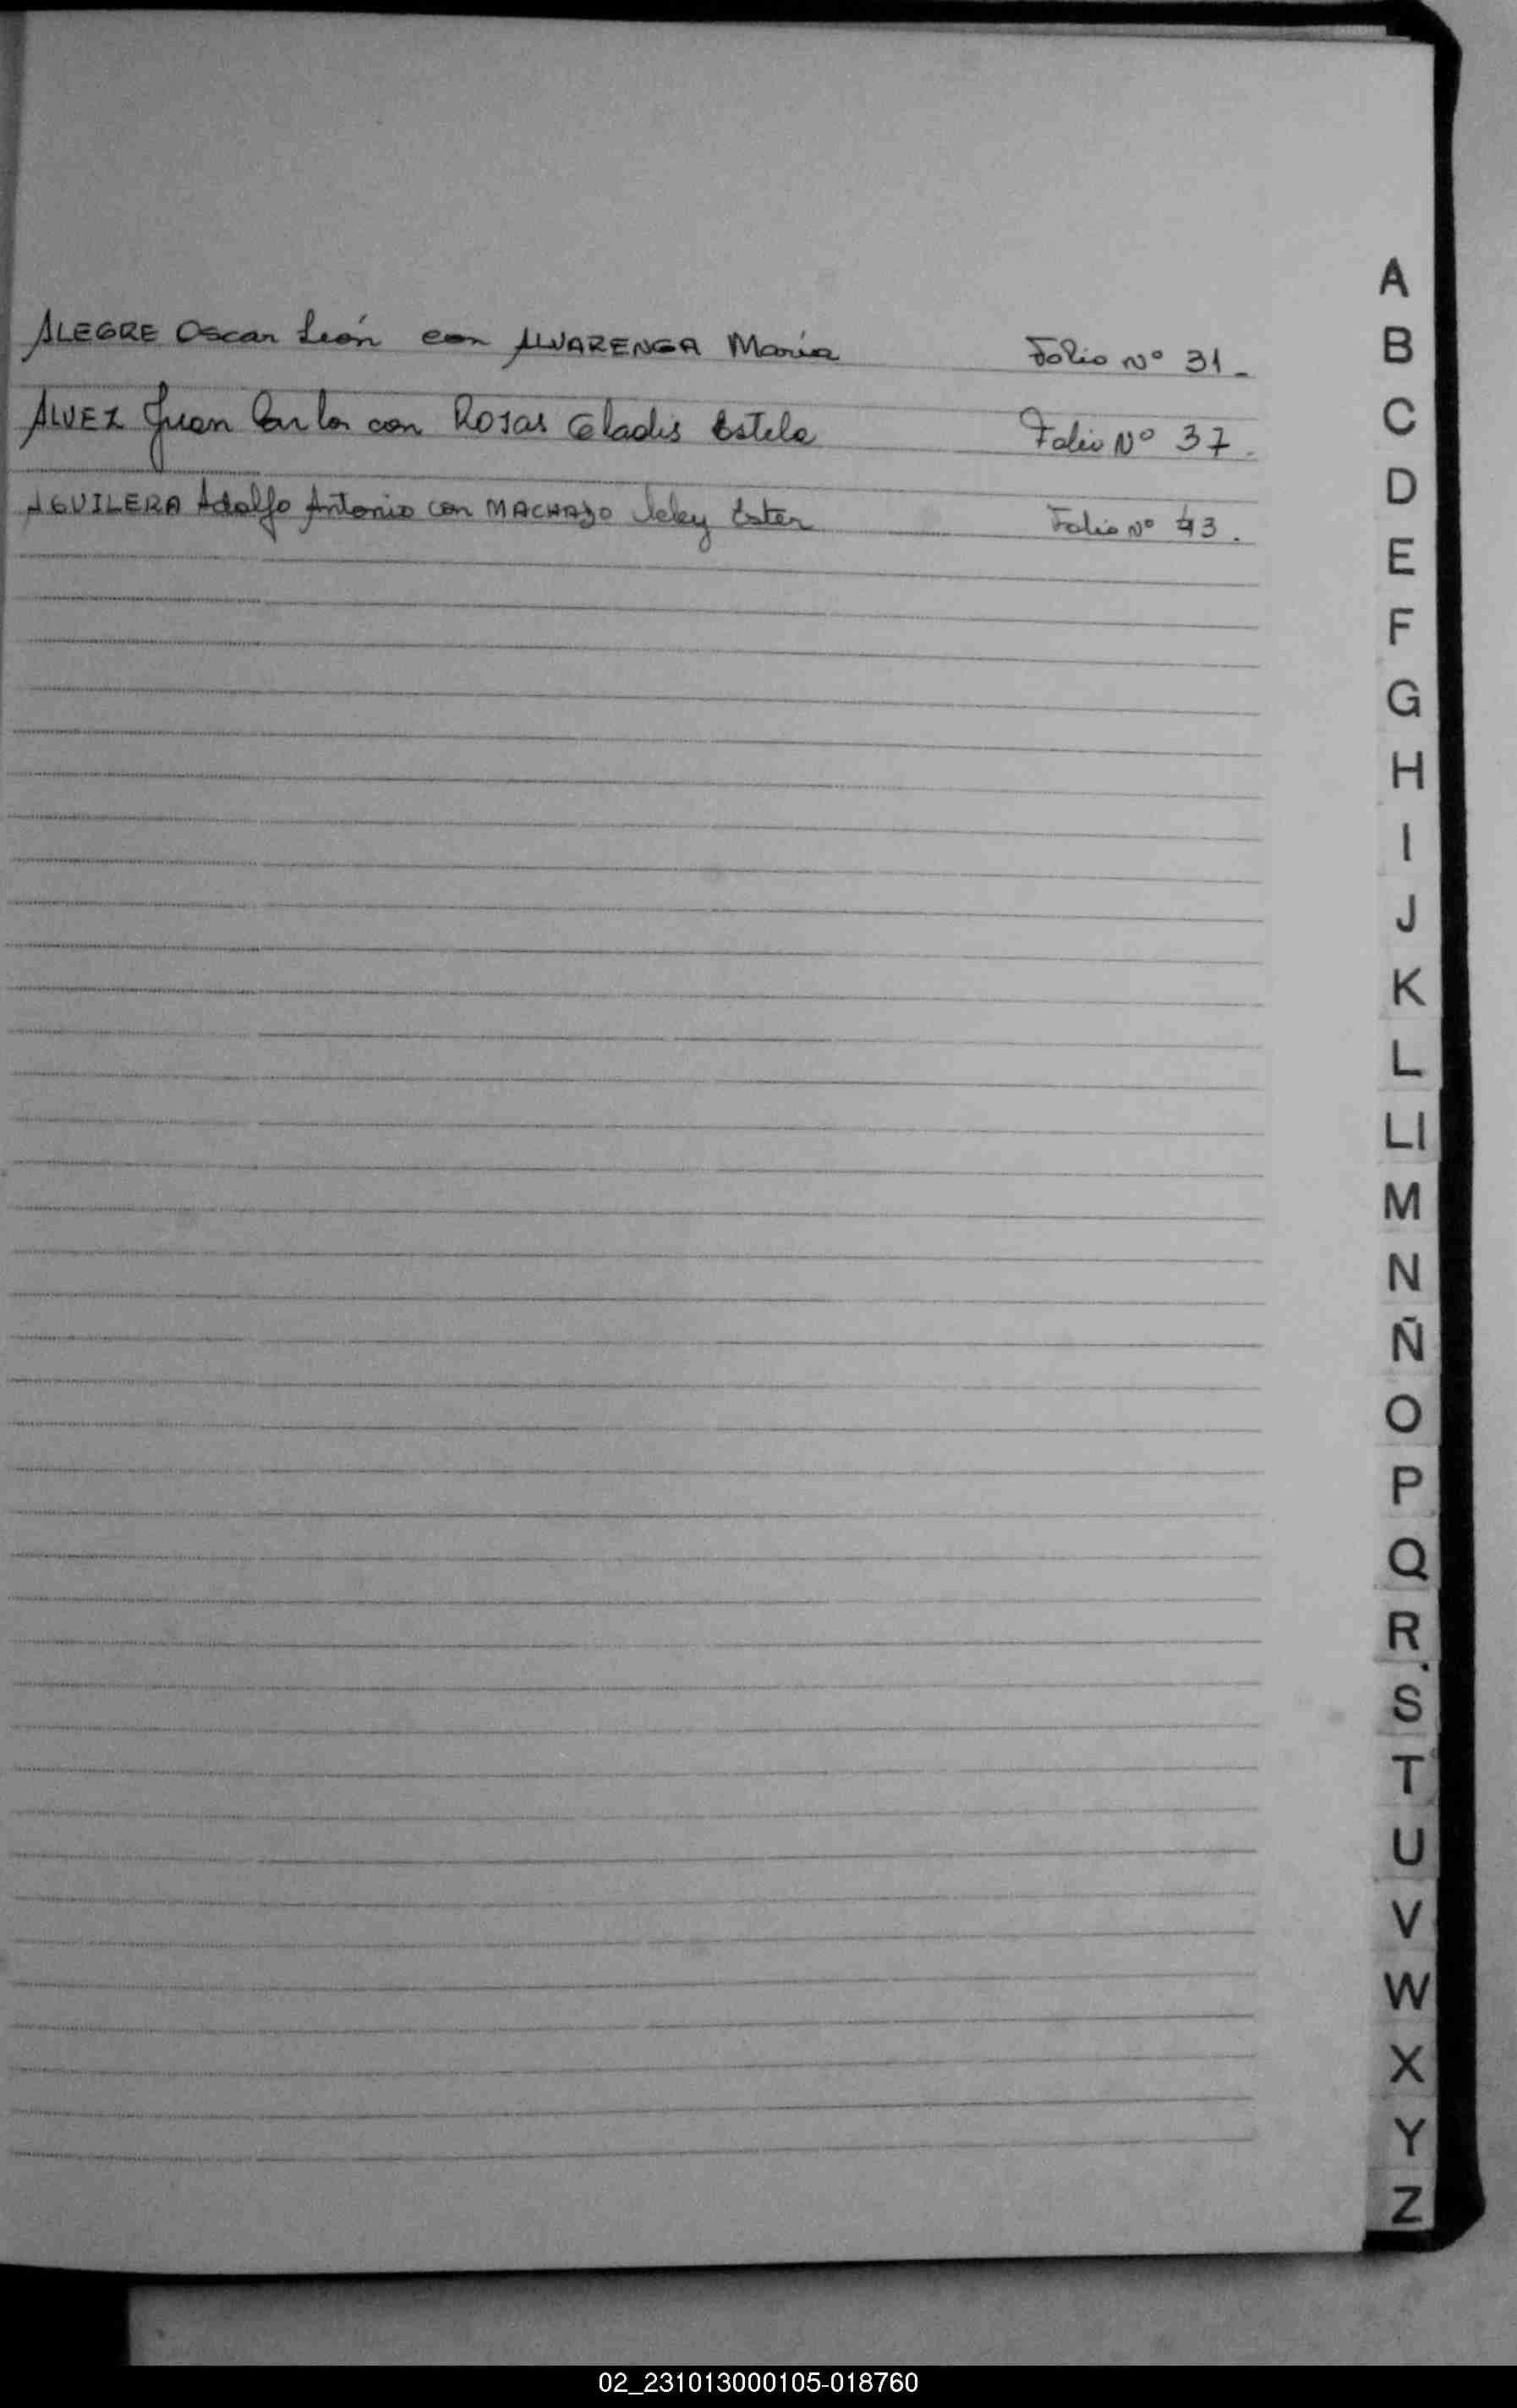 ALEGRE Oscar León con ALVARENGA María Folio Nº 31_
ALVEZ Juan Carlos con Rosas Gladis Estela Folio Nº 37.
AGUILERA Adolfo Antonio con MACHADO Ester Folio Nº 43.
A
B
C
D
E
F
G
H
I
J
K
L
Ll
M
N
Ñ
O
P
Q
R
S
T
U
V
W
X
Y
Z
02_231013000105-018760